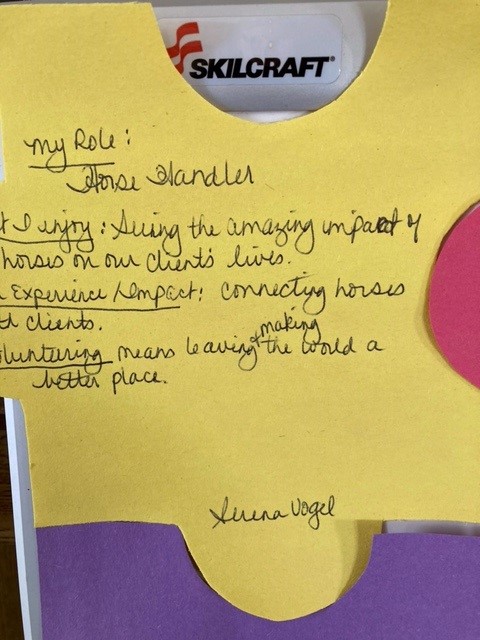 SKILCRAFT
My Role:
Horse Handler
t I enjoy: Seeing the amazing impact of
horses on our client's lives.
Experience/Impact: connecting horses
th clients.
oluntering means leaving & making the world a
better place.
Serena Vogel